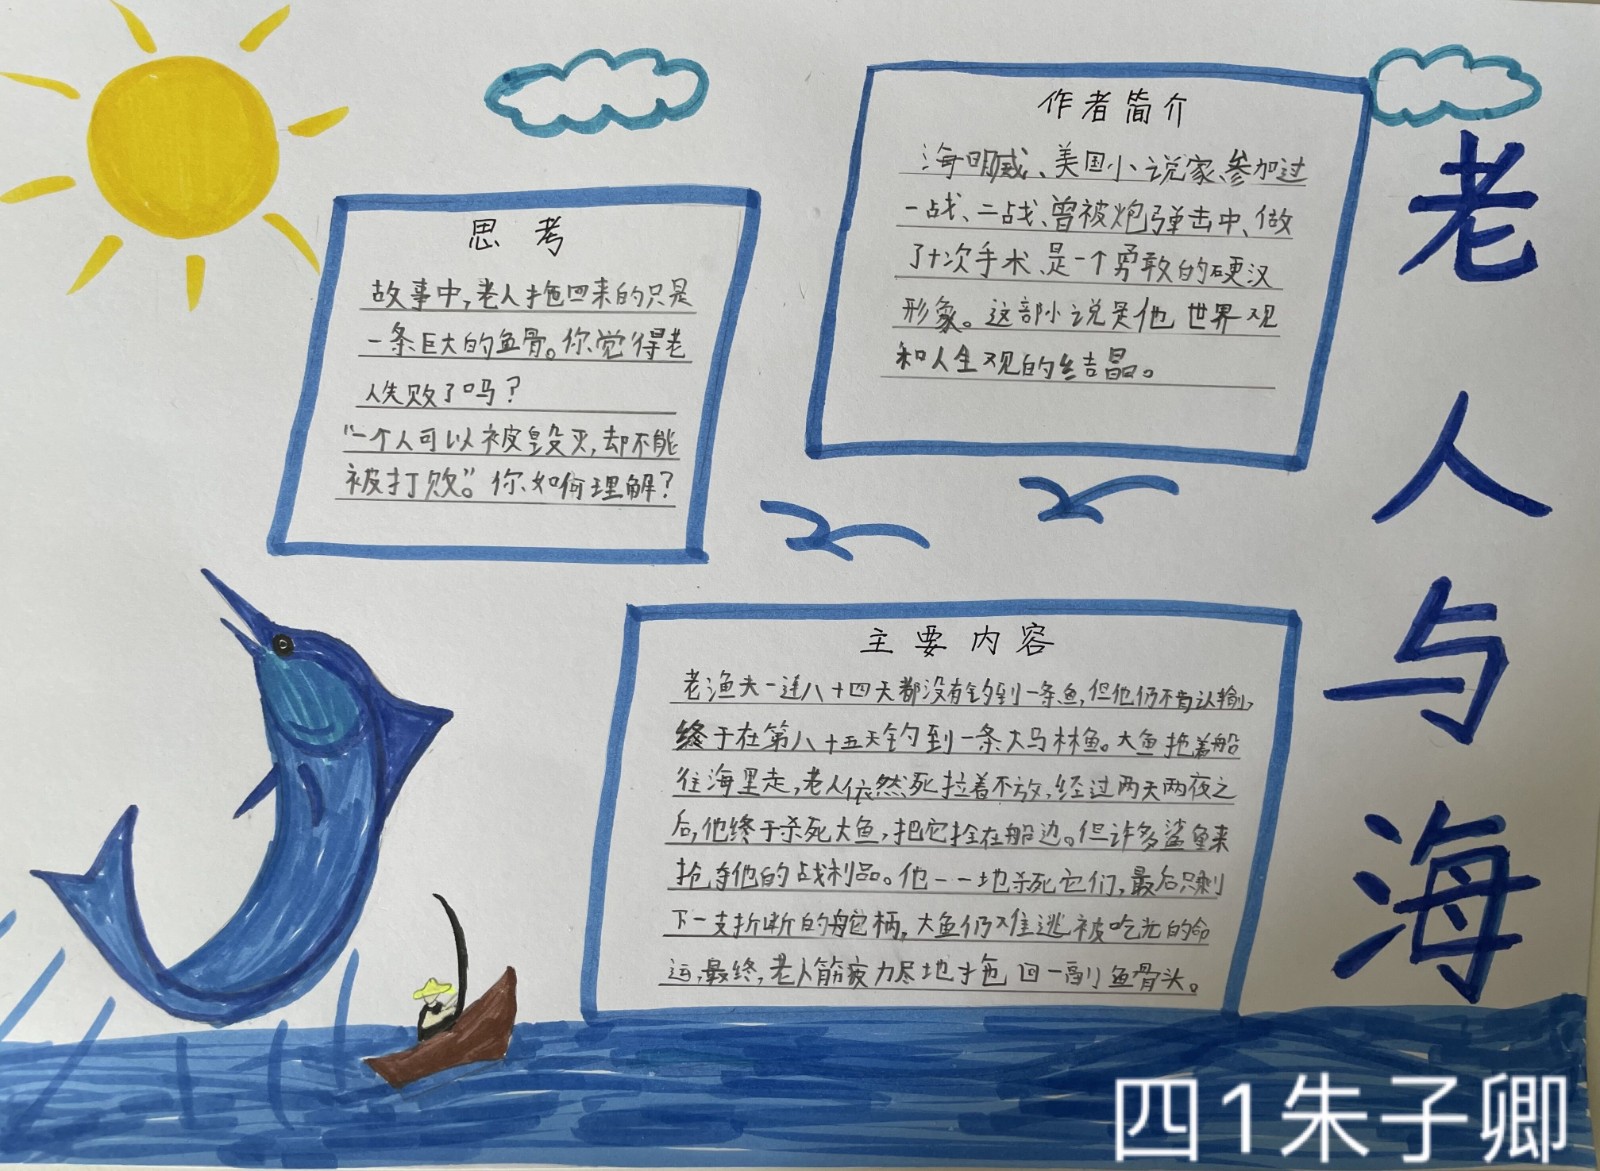 老人与海
作者简介
海明威、美国小说家、参加过
一战、二战、曾被炮弹击中、做
了十次手术、是一个勇敢的硬汉
形象。这部小说是他世界观
和人生观的结晶。
思考
故事中,老人拖回来的只是
一条巨大的鱼骨。你觉得老
人失败了吗？
“一个人可以被毁灭,却不能
被打败”。你如何理解？
主要内容
老渔夫一连八十四天都没有钓到一条鱼,但他仍不肯认输,
终于在第八十五天钓到一条大马林鱼。大鱼拖着船
往海里走,老人依然死拉着不放,经过两天两夜之
后,他终于杀死大鱼,把它拴在船边。但许多鲨鱼来
抢夺他的战利品。他一一地杀死它们,最后只剩
下一支折断的舵柄,大鱼仍难逃被吃光的命
运,最终,老人筋疲力尽地拖回一副鱼骨头。
四1朱子卿